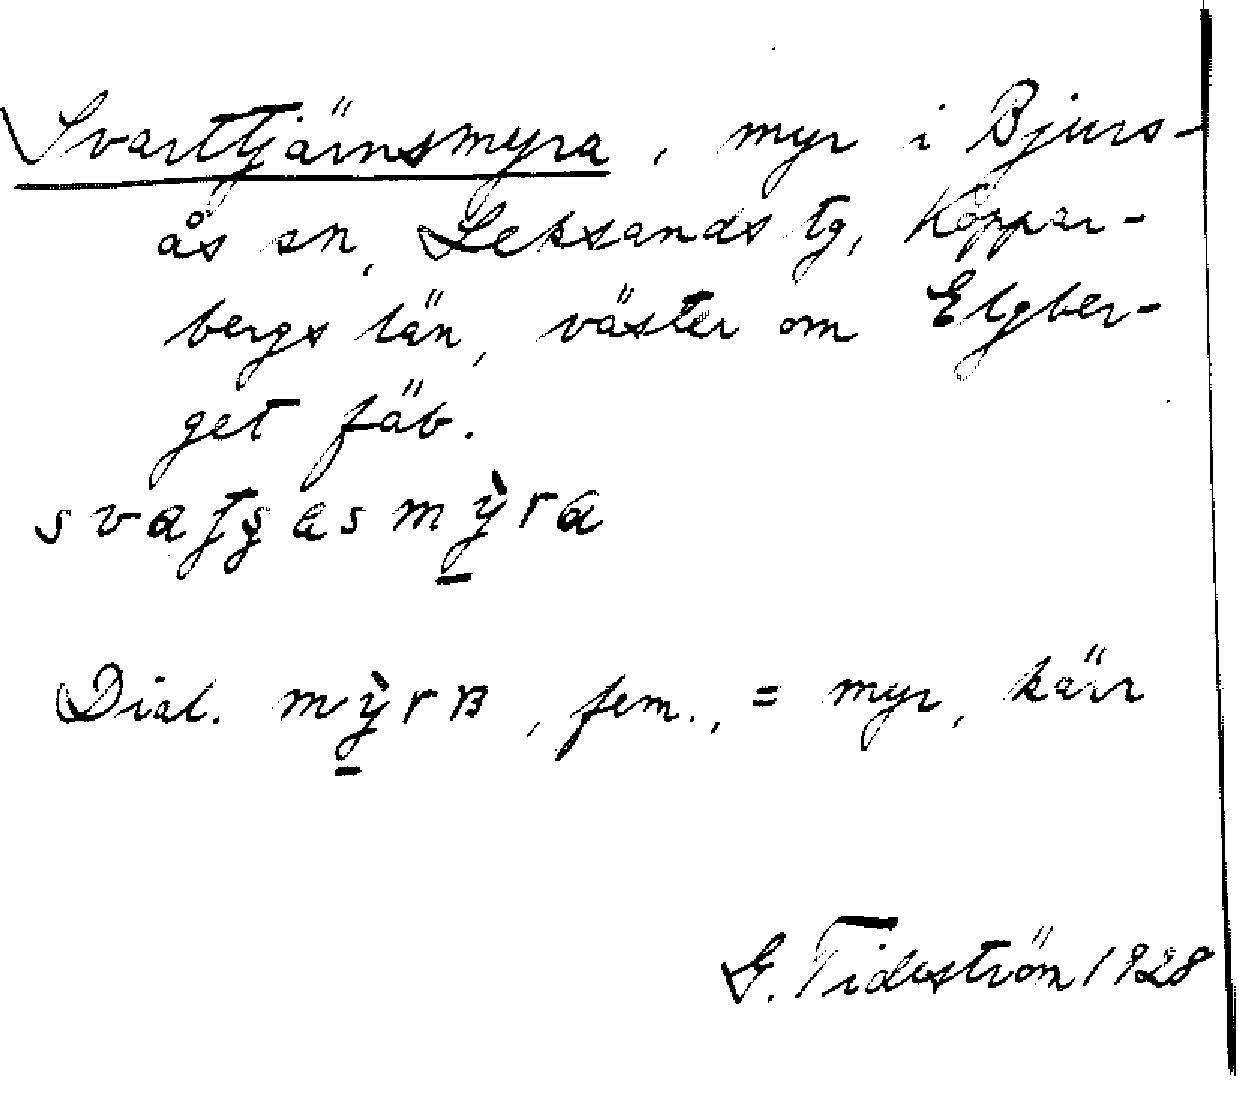 Svarttjärnsmyra, myr i Bjurs-
ås sn, Leksands tg, Koppar-
bergs län, väster om Elgber-
get fäb.
Dial. mỳ̱rʙ, fem., = myr, kärr
G. Tideström 1928